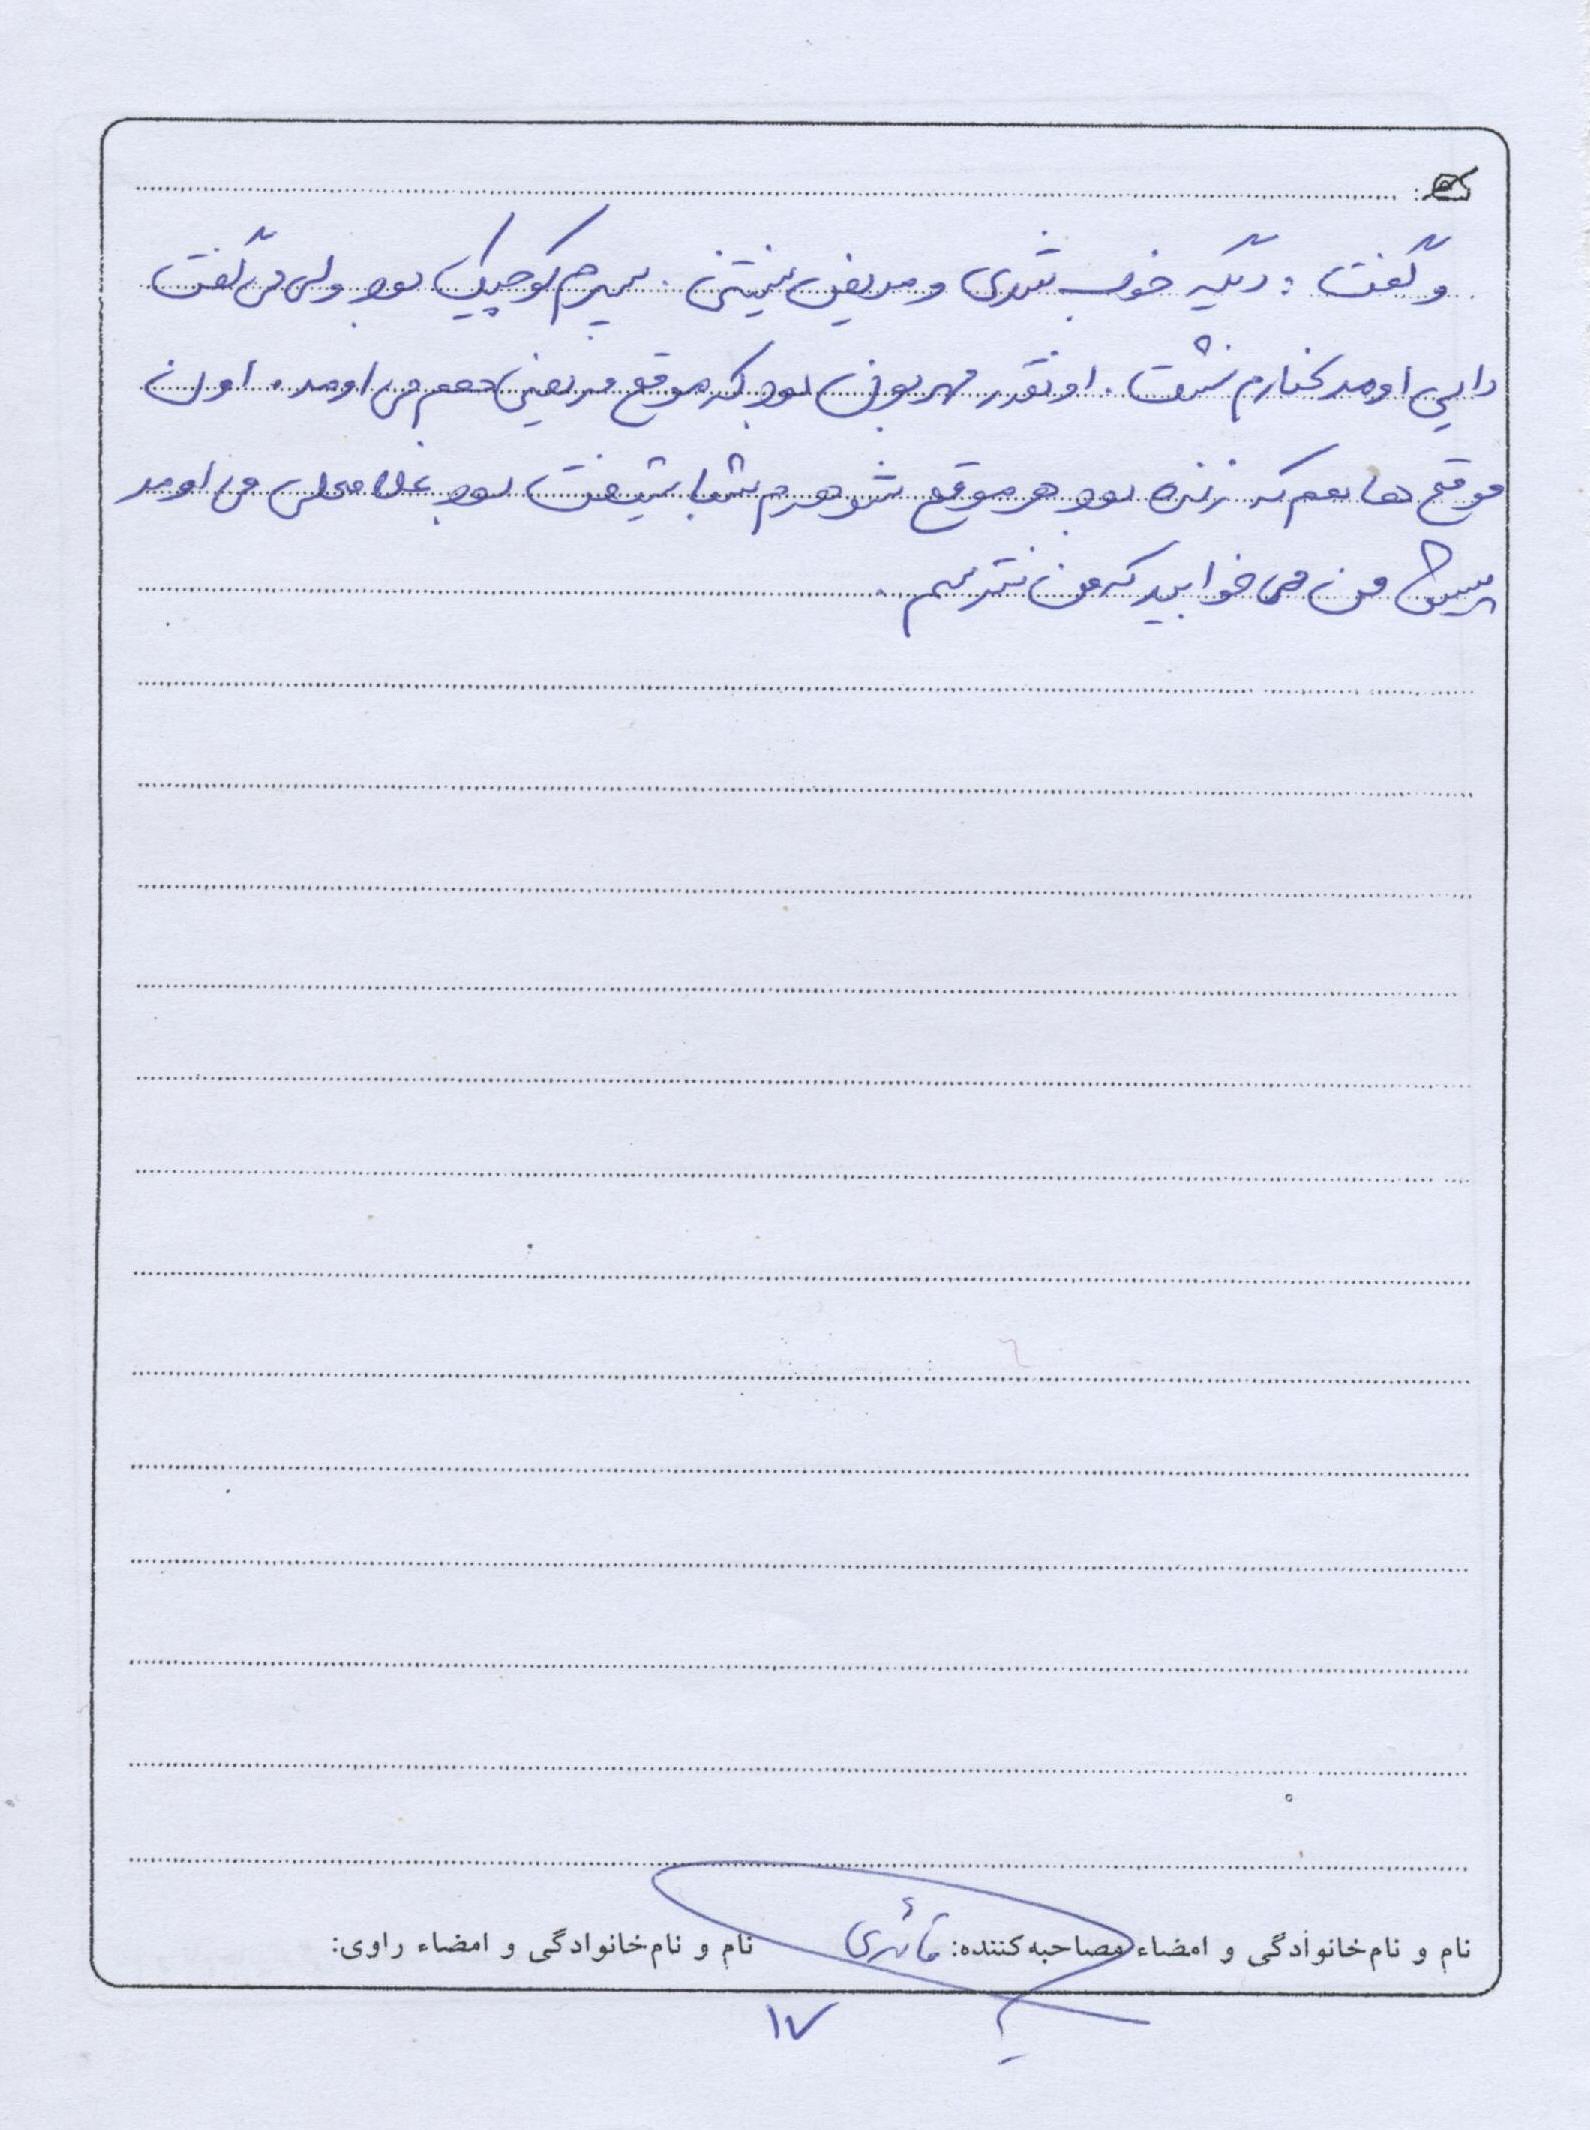 و گفت : دیگه خوب شدی و مریض نیستی . پسرم کوچیک بود ولی می گفت
دایی اومد کنارم نشست . اونقدر مهربون بود که موقع مریضی هم می اومد . اون
موقع ها هم که زنده بود هر موقع شوهرم شبا شیفت بود غلامعلی می اومد
پیش من می خوابید که من نترسم .
نام و نام‌خانوادگی و امضاء مصاحبه‌کننده: قائدی
نام و نام‌خانوادگی و امضاء راوی:
۱۷